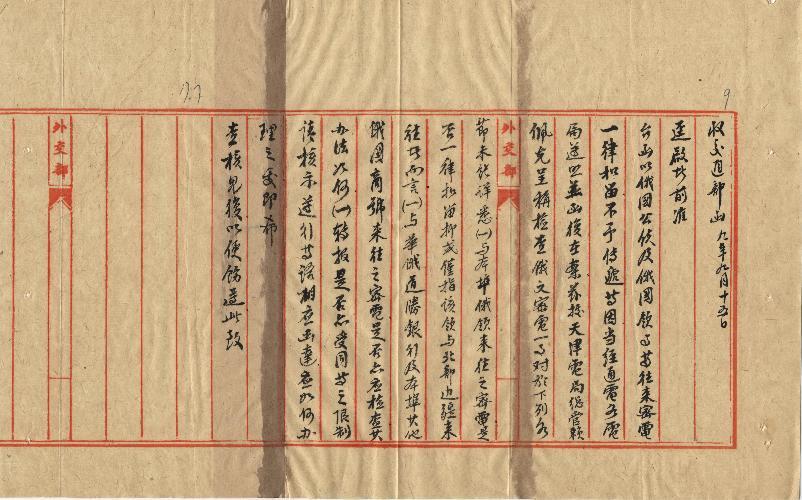 9
收交通部函 九年九月十五日
逕啟者前准
台函以俄國公使及俄國領事等往來密電
一律扣留不予傳遞等因當經通電各電
局遵照並函復在案茲據天津電局總管賴
佩克呈稱檢查俄文密電一事對於下列各
節未能詳悉(一)与本埠俄領來往之密電是
否一律扣留抑或僅指該領与北部邊疆來
往者而言(一)与華俄道勝銀行及本埠其他
俄國商號來往之密電是否亦應檢查其
办法如何(一)轉报是否亦受同等之限制
請核示遵行等語相應函達應如何办
理之處即希
查核見復以便飭遵此致
外交部
外交部